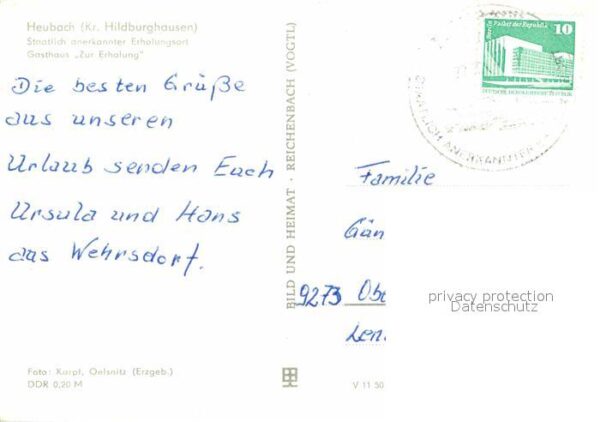 Heubach (Kr. Hildburghausen)
Staatlich anerkannter Erholungsort
Gasthaus „Zur Erholung“
Die besten Grüße
aus unseren
Urlaub senden Euch
Ursula und Hans
aus Wehrsdorf.
Foto: Karpf, Oelsnitz (Erzgeb.)
DDR 0,20 M
BILD UND HEIMAT · REICHENBACH (VOGTL)
V 11 50
Berlin, Palast der Republik
10
DEUTSCHE DEMOKRATISCHE REPUBLIK
STAATLICH ANERKANNTER
Familie
Gän
9273 Obe
privacy protection
Datenschutz